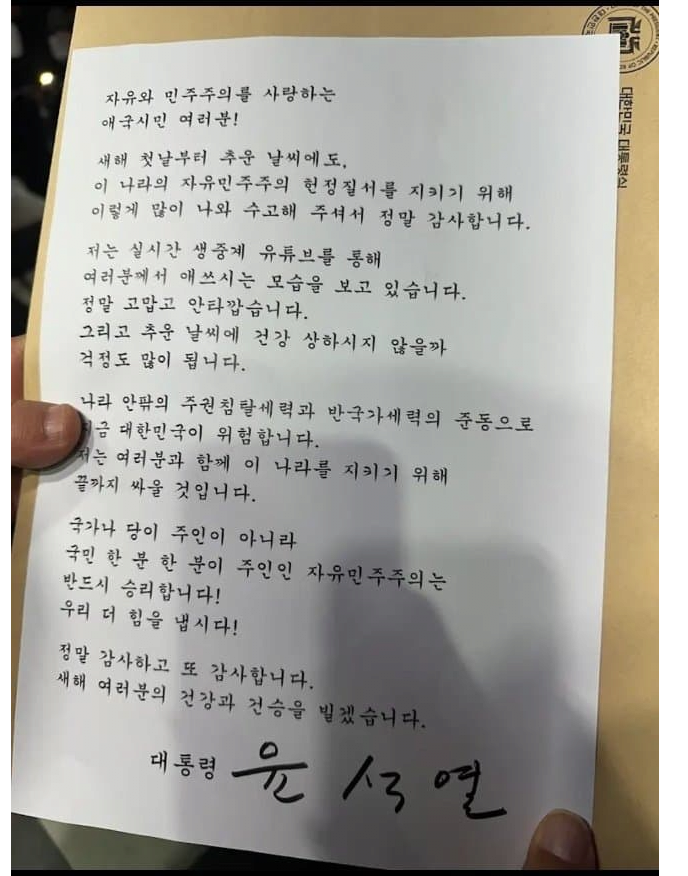 자유와 민주주의를 사랑하는
애국시민 여러분!
새해 첫날부터 추운 날씨에도,
이 나라의 자유민주주의 헌정질서를 지키기 위해
이렇게 많이 나와 수고해 주셔서 정말 감사합니다.
저는 실시간 생중계 유튜브를 통해
여러분께서 애쓰시는 모습을 보고 있습니다.
정말 고맙고 안타깝습니다.
그리고 추운 날씨에 건강 상하시지 않을까
걱정도 많이 됩니다.
나라 안팎의 주권침탈세력과 반국가세력의 준동으로
지금 대한민국이 위험합니다.
저는 여러분과 함께 이 나라를 지키기 위해
끝까지 싸울 것입니다.
국가나 당이 주인이 아니라
국민 한 분 한 분이 주인인 자유민주주의는
반드시 승리합니다!
우리 더 힘을 냅시다!
정말 감사하고 또 감사합니다.
새해 여러분의 건강과 건승을 빌겠습니다.
대통령 윤석열
대한민국 대통령실